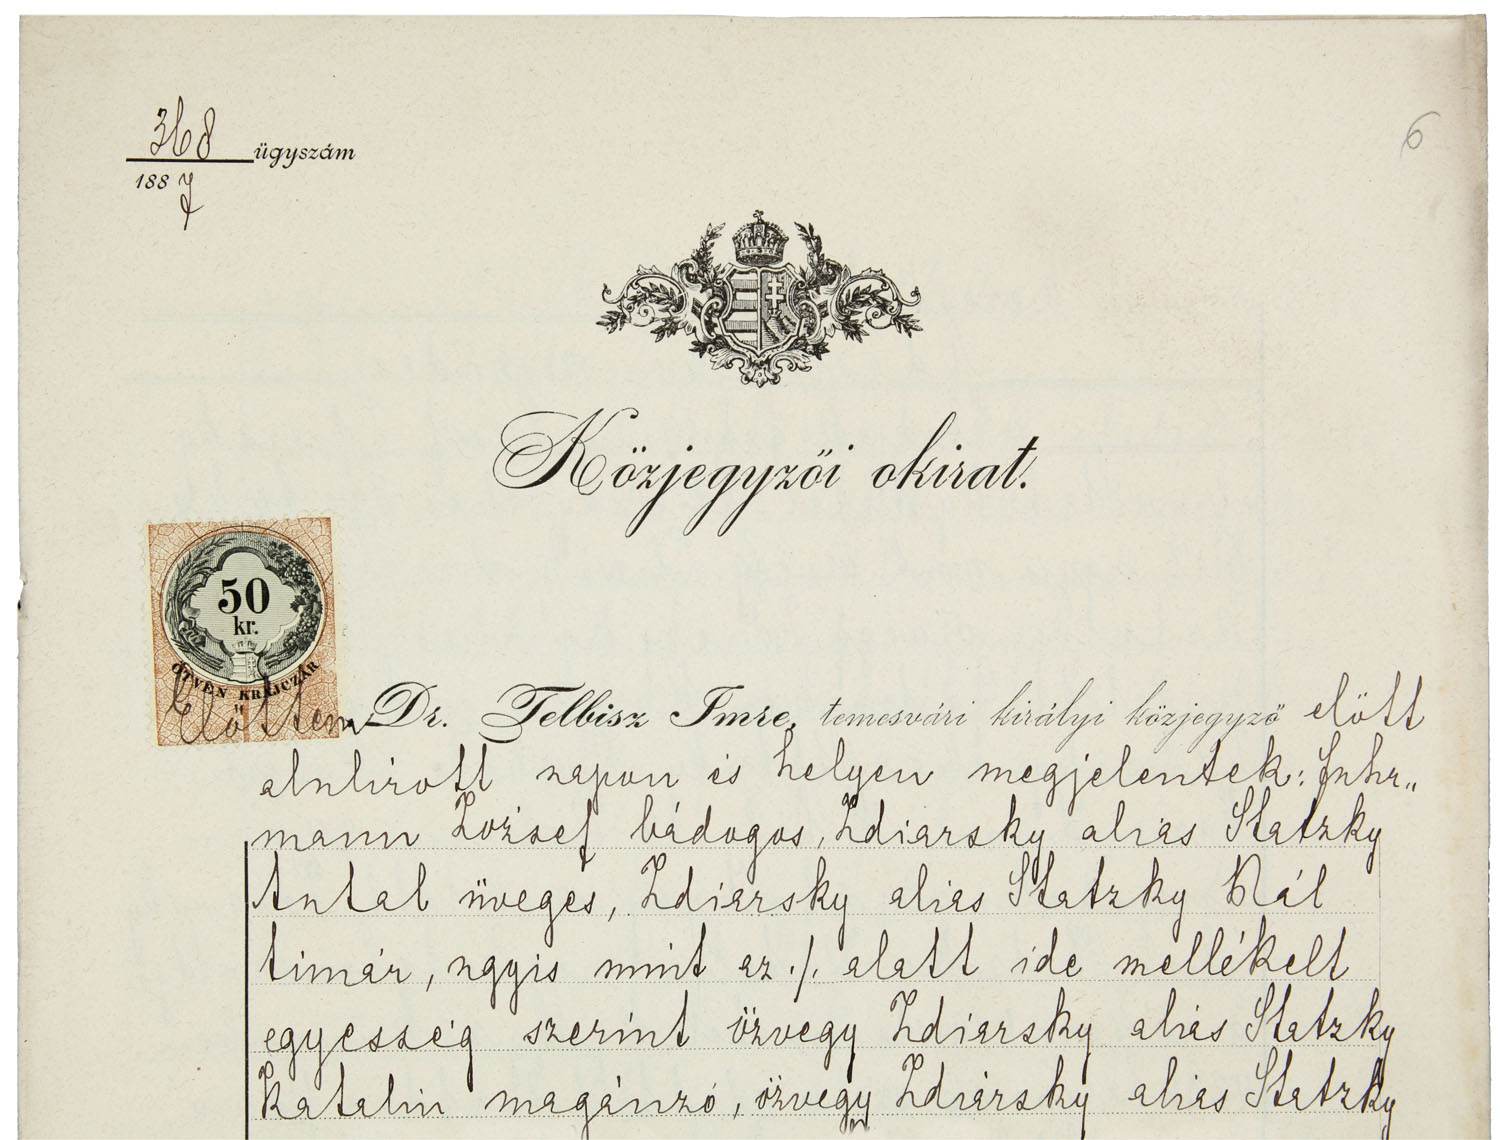 368 ügyszám
1887
6
Közjegyzöi okirat.
50
kr.
ÖTVEN KRAJCZÁR
Elöttem Dr. Telbisz Imre, temesvári királyi közjegyzö elött
alulirott napon és helyen megjelentek: Fuhr„
mann József bádogos, Zdiarsky aliás Statzky
Antal üveges, Zdiarsky alias Statzky Pál
timár, ugyis mint az ./. alatt ide mellékelt
egyesség szerint özvegy Zdiarsky aliás Statzky
Katalin magánzó, özvegy Zdiársky aliás Statzky